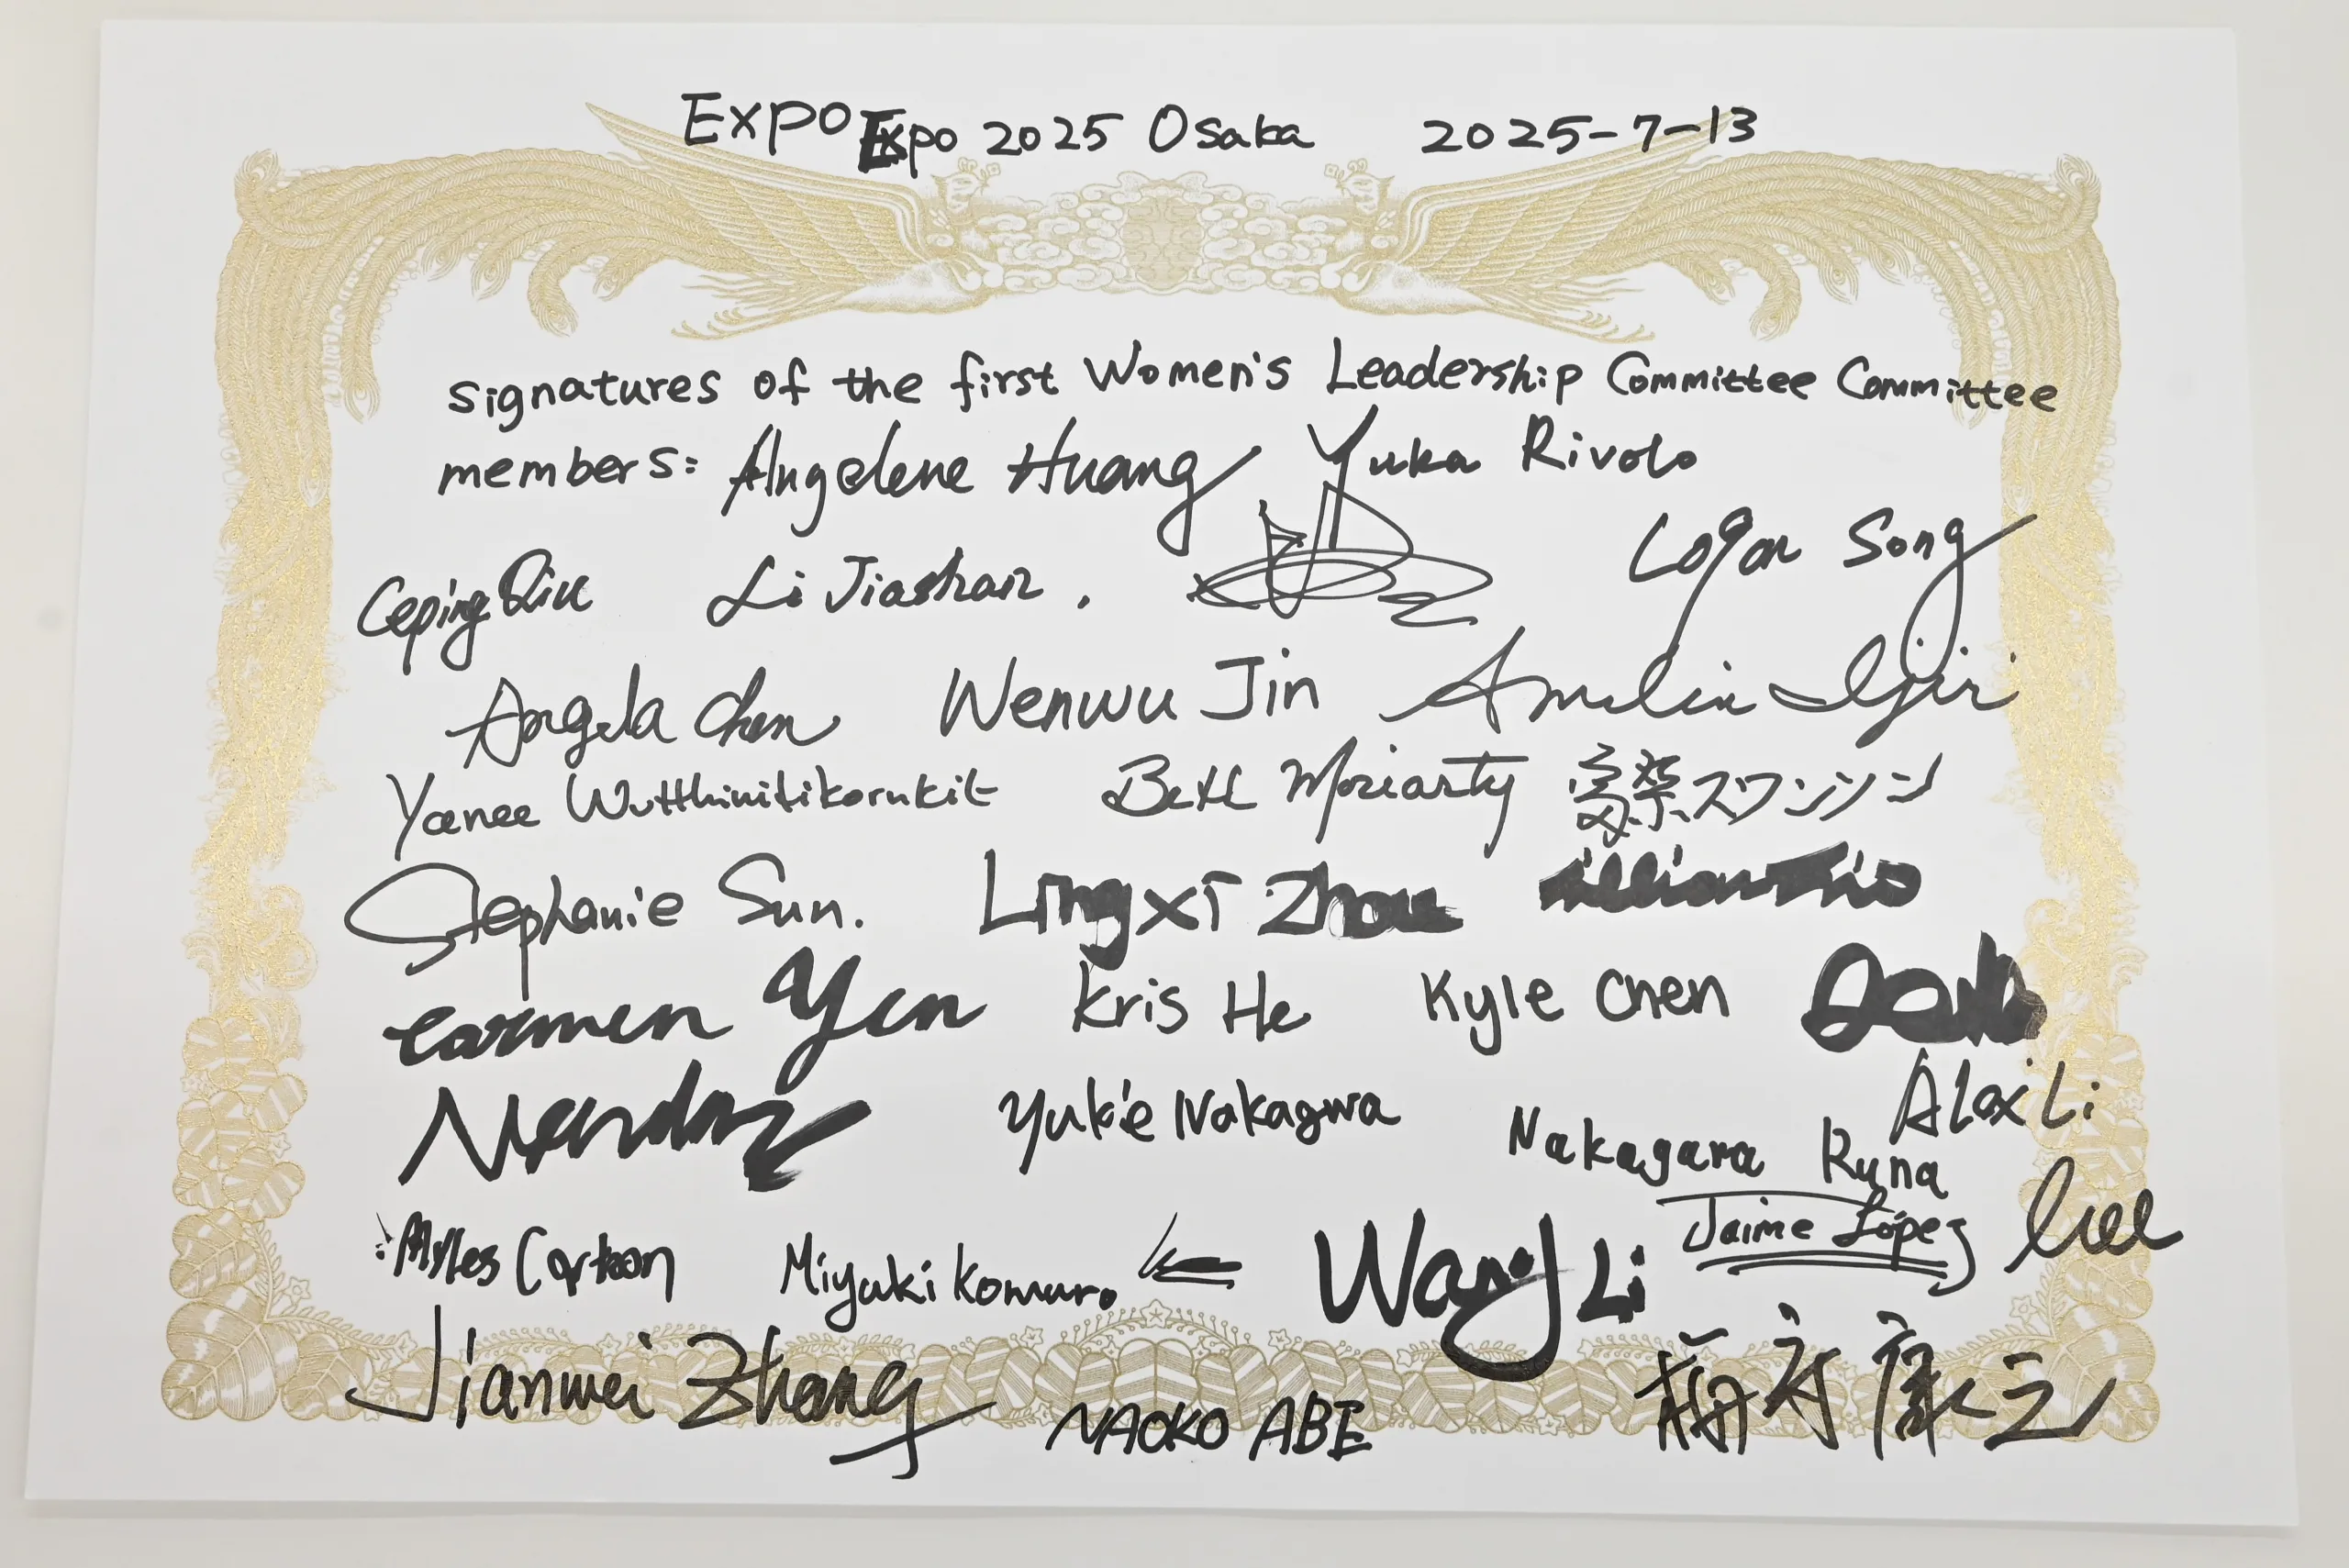 Expo Expo 2025 Osaka 2025-7-13
signatures of the first Women's Leadership Committee Committee
members: Angelene Huang Yuka Rivolo
Ceping Qiu Li Jiashan. Logan Song
Angela Chen Wenwu Jin
Yaenee Wutthinitikornkit Beth Moriarty スワンソン
Stephanie Sun. Lingxi Zhou
Carmen Yen Kris He Kyle Chen
Yukie Nakagwa Nakagara Runa Alex Li
Myles Miyuki Komuro Wang Li Jaime López
Jianwei Zhang NAOKO ABE